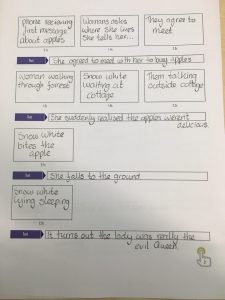 phone recieving
first message
about apples
Womans asks
where she lives
She tells her...
They agree to
meet
She agreed to meet with her to buy apples
Woman walking
through forrest
Snow white
waiting at
cottage
Them talking
outside cottage
She suddenly realised the apples weren't
delicious.
Snow white
bites the
apple
She falls to the ground
Snow white
lying sleeping
It turns out the lady was really the
evil Queen